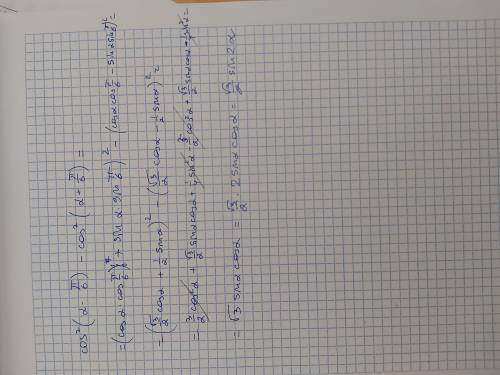 cos²(α - π/6) - cos²(α + π/6) =
= (cosα · cos π/6 + sinα · sin π/6)² - (cosα cos π/6 - sinα sin π/6)² =
= (√3/2 cosα + 1/2 sinα)² - (√3/2 cosα - 1/2 sinα)² =
= 3/2 cos²α + √3/2 sinα cosα + 1/4 sin²α - 3/2 cos²α + √3/2 sinα cosα - 1/4 sin²α =
= √3 sinα cosα = √3/2 · 2 sinα cosα = √3/2 sin2α